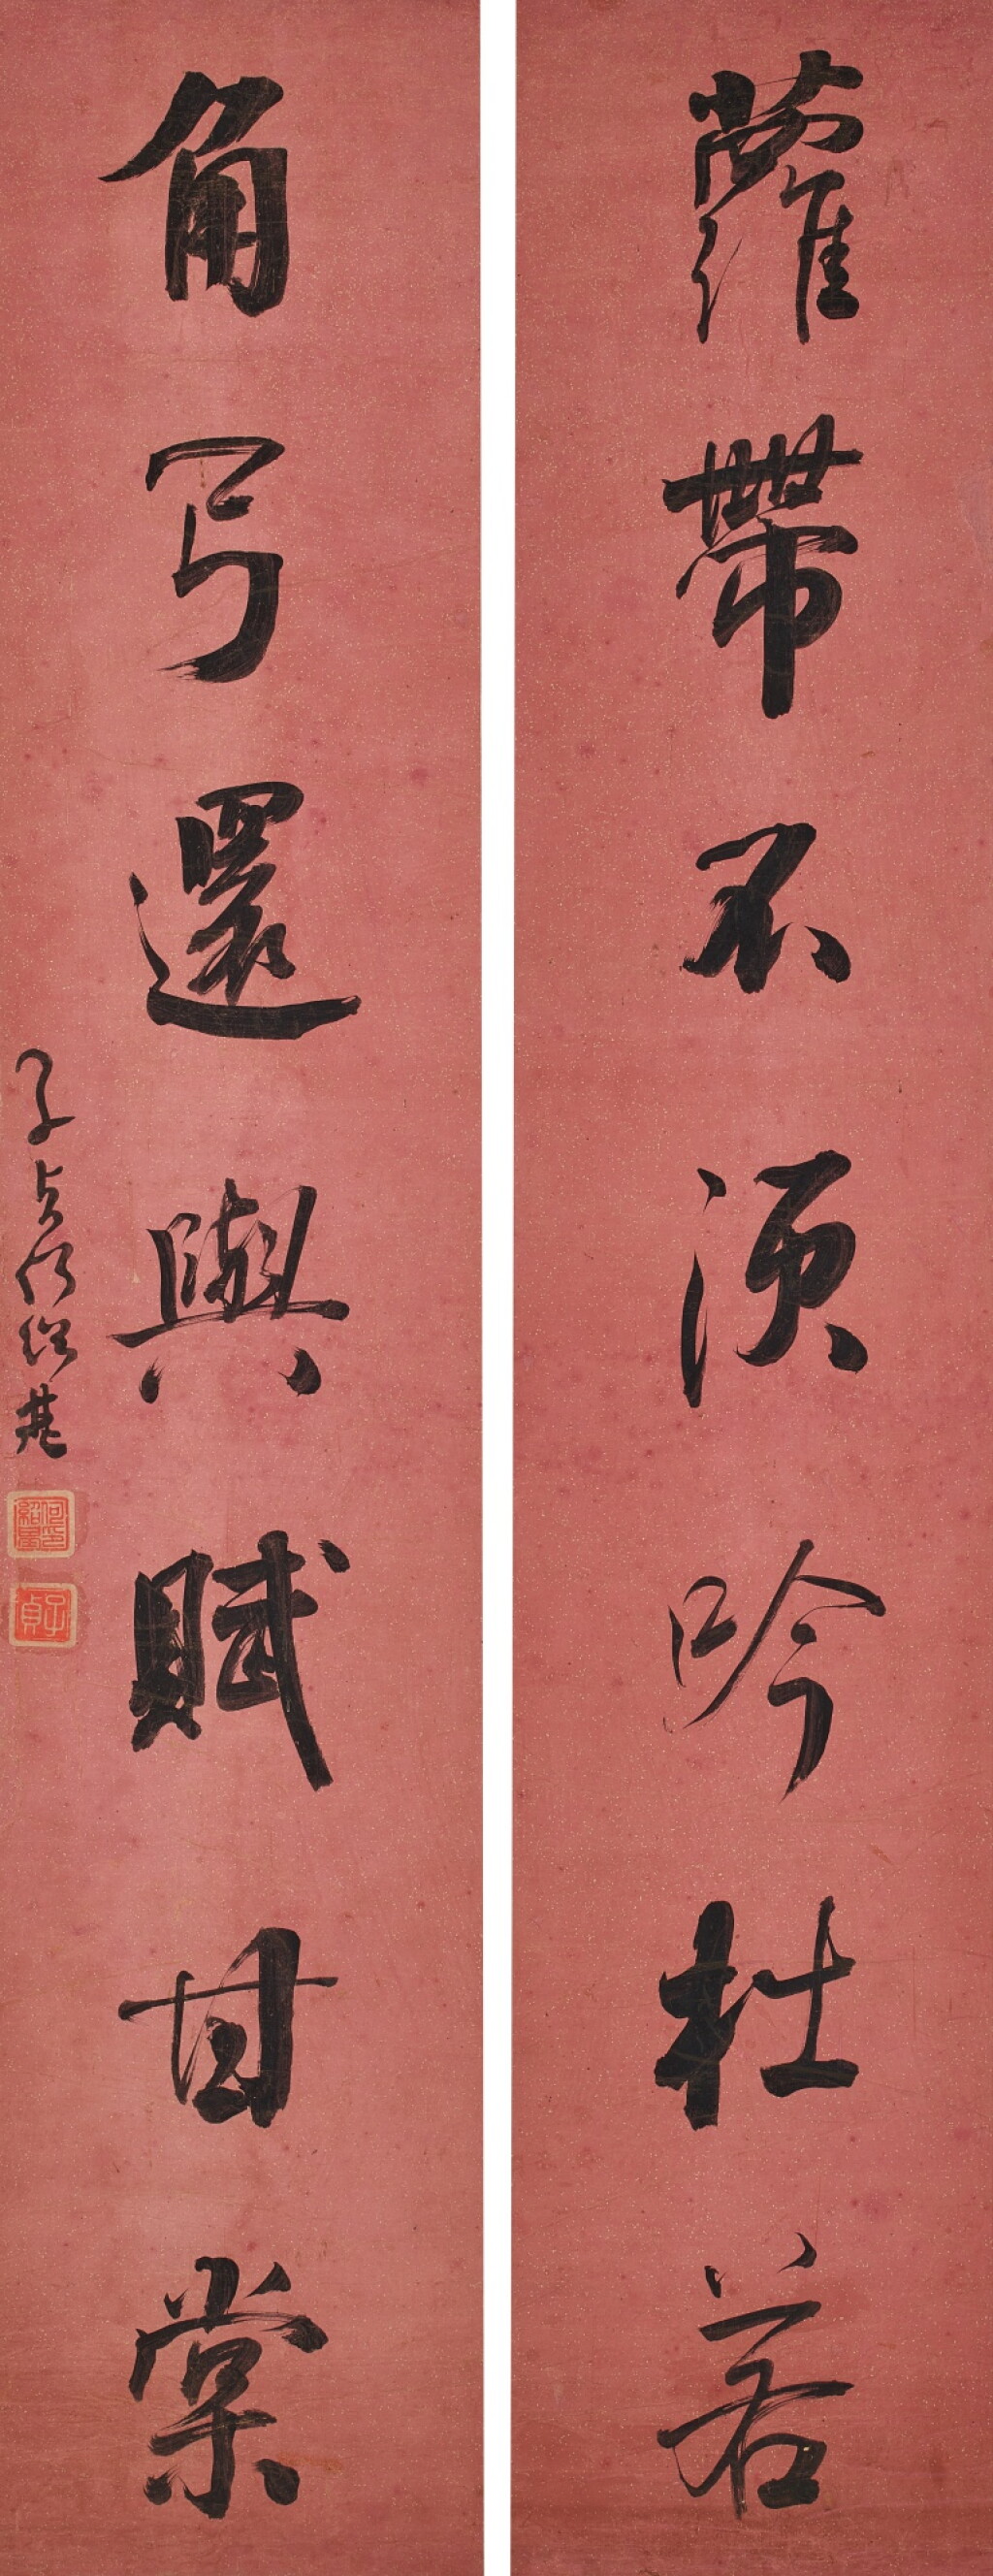 蘿帶不須吟杜若
角弓還與賦甘棠
子貞何紹基
何紹基印
子貞